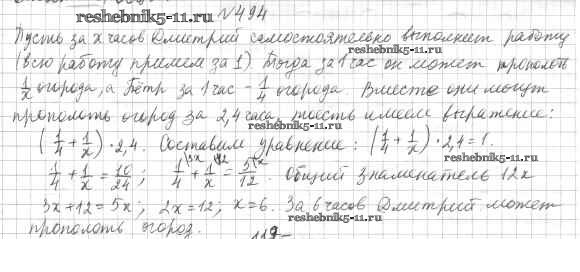 reshebnik5-11.ru №494
Пусть за x часов Дмитрий самостоятельно выполнит работу
(всю работу примем за 1). Тогда за 1 час он может прополоть
1/x огорода, а Пётр за 1 час - 1/4 огорода. Вместе они могут
прополоть огород за 2,4 часа, то есть имеем выражение:
(1/4 + 1/x) · 2,4. Составим уравнение: (1/4 + 1/x) · 2,4 = 1.
1/4 + 1/x = 10/24; 1/4 (3x + 1/x (12 = 5/12 (x. Общий знаменатель 12x
3x + 12 = 5x; 2x = 12; x = 6. За 6 часов Дмитрий может
reshebnik5-11.ru
прополоть огород.